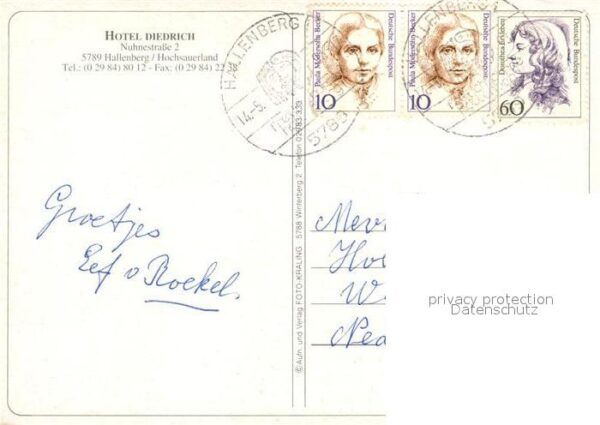 HOTEL DIEDRICH
Nuhnestraße 2
5789 Hallenberg / Hochsauerland
Tel.: (0 29 84) 80 12 - Fax: (0 29 84) 22 38
HALLENBERG
14.-6.
5789
Paula Modersohn-Becker
Deutsche Bundespost
10
Paula Modersohn-Becker
Deutsche Bundespost
10
Dorothea Erxleben
Deutsche Bundespost
60
HALLENBERG 1
Groetjes
Eef v Roekel.
© Aufn. und Verlag FOTO-KRALING 5788 Winterberg 2, Telefon 02983-339
Mevr
Ho
W
Ne
privacy protection
Datenschutz